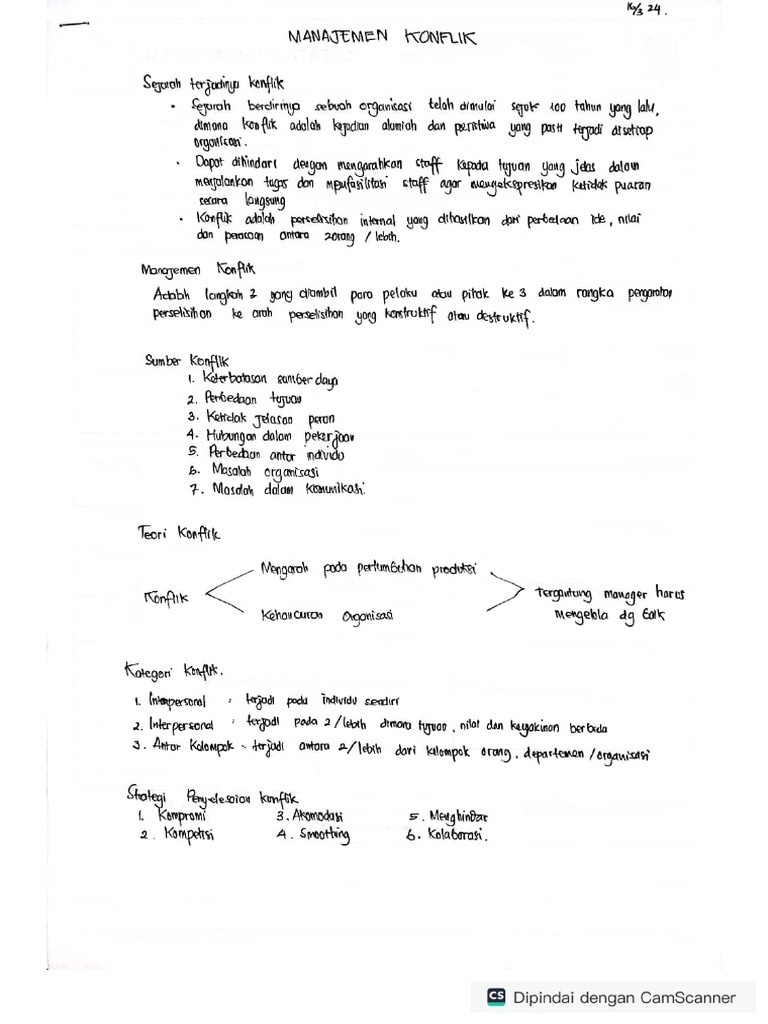 16/3 24.
MANAJEMEN KONFLIK
Sejarah terjadinya konflik
• Sejarah berdirinya sebuah organisasi telah dimulai sejak 100 tahun yang lalu,
dimana konflik adalah kejadian alamiah dan peristiwa yang pasti terjadi disetiap
organisasi.
• Dapat dihindari dengan mengarahkan staff kepada tujuan yang jelas dalam
menjalankan tugas dan mpufasilitasi staff agar mengekspresikan ketidak puasan
secara langsung
• Konflik adalah perselisihan internal yang dihasilkan dari perbedaan ide, nilai
dan perasaan antara 2orang / lebih.
Manajemen Konflik
Adalah langkah 2 yang diambil para pelaku atau pihak ke 3 dalam rangka pengarahan
perselisihan ke arah perselisihan yang konstruktif atau destruktif.
Sumber Konflik
1. Keterbatasan sumber daya
2. Perbedaan tujuan
3. Ketidak jelasan peran
4. Hubungan dalam pekerjaan
5. Perbedaan antar individu
6. Masalah organisasi
7. Masalah dalam komunikasi.
Teori Konflik
Mengarah pada pertumbuhan produksi
Konflik
tergantung manager harus
Kehancuran Organisasi
mengelola dg baik
Kategori Konflik.
1. Intrapersonal : terjadi pada individu sendiri
2. Interpersonal : terjadi pada 2/lebih dimana tujuan, nilai dan keyakinan berbeda
3. Antar Kelompok - terjadi antara 2/lebih dari kelompok orang, departemen /organisasi
Strategi Penyelesaian konflik
1. Kompromi 3. Akomodasi 5. Menghindar
2. Kompetisi 4. Smoothing 6. Kolaborasi.
CS Dipindai dengan CamScanner